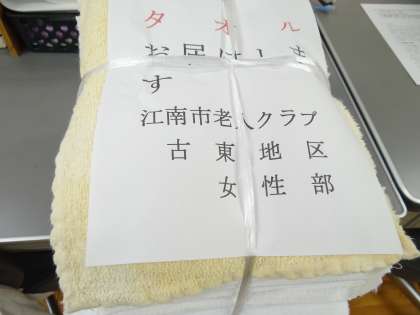 タオル
お届けします
江南市老人クラブ
古東地区
女性部